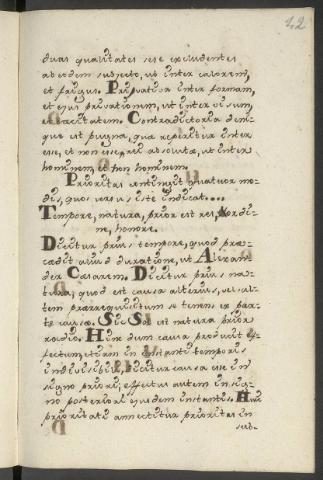 42
duas qualitates sese excludentes
ab eodem subjecto, ut inter calorem,
et frigus. Privativa inter formam,
et ejus privationem, ut inter visum,
et caecitatem. Contradictoria deni-
que est pugna, quae reperitur inter
esse, et non esse rei absolutae, ut inter
hominem, et non hominem.
Prioritas contingit quatuor mo-
dis, quos versus iste indicat....
Tempore, natura, prior est rei, ordi-
ne, honore.
Dicitur prius tempore, quod prae-
cedit aliud duratione, ut Alexan-
der Caesarem. Dicitur prius na-
tura, quod est causa alterius, vel sal-
tem praerequisitum se tenens ex par-
te causae. Sic Sol est natura prior
radio. Hinc dum causa producit ef-
fectum, etiam in instanti temporis
indivisibili, dicitur causa esse in
signo priori, effectus autem in sig-
no posteriori ejusdem instantis. Huic
prioritati annectitur prioritas in
sub-